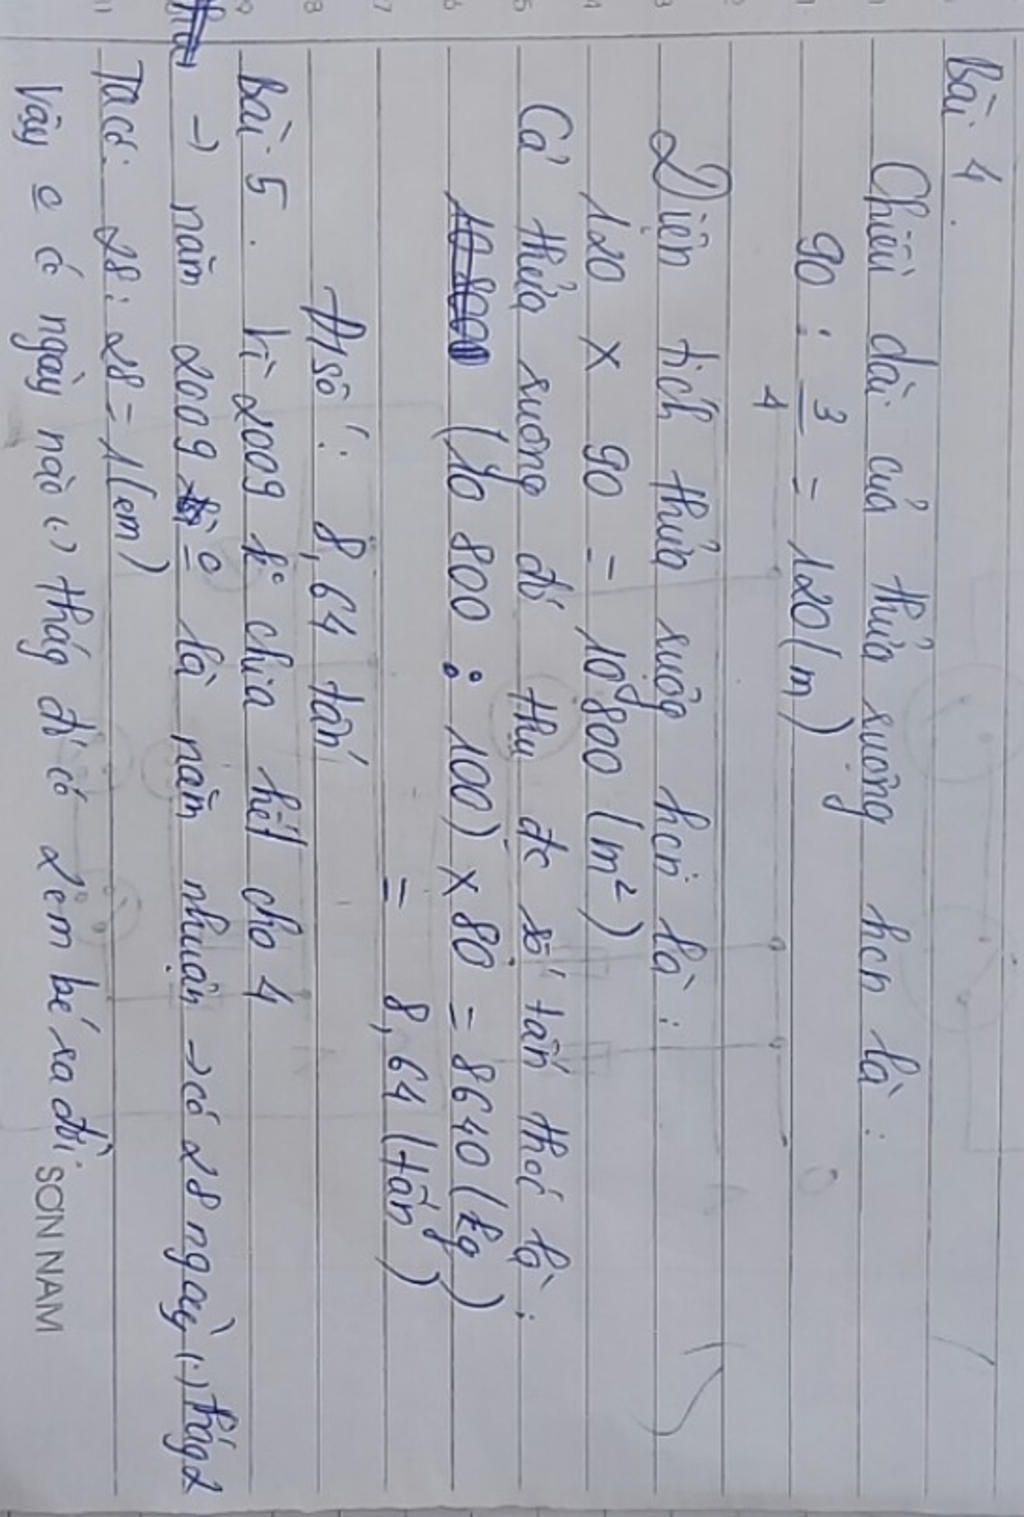 Bài 4.
Chiều dài của thửa ruộng hcn là:
90 : 3/4 = 120 (m)
Diện tích thửa ruộg hcn là:
120 x 90 = 10 800 (m²)
Cả thửa ruộng đó thu đc số tấn thóc là:
(10 800 : 100) x 80 = 8640 (kg)
= 8,64 (tấn)
Đ/số: 8,64 tấn
Bài 5. Vì 2009 k° chia hết cho 4
→ năm 2009 o là năm nhuận → có 28 ngày (.) thág 2
Ta có: 28 : 28 = 1 (em)
Vậy o có ngày nào (.) thág đó có 2 em bé ra đời.
SƠN NAM
11 9 8 7 6 5 4 3